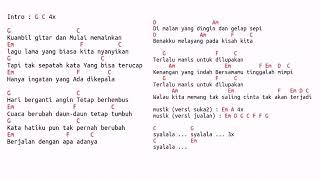 Intro : G C 4x
G C
Kuambil gitar dan Mulai memainkan
Em F C
lagu lama yang biasa kita nyanyikan
G C
Tapi tak sepatah kata Yang bisa terucap
Em F C
Hanya ingatan yang Ada dikepala
G C
Hari berganti angin Tetap berhembus
Em F C
Cuaca berubah daun-daun tetap tumbuh
G C
Kata hatiku pun tak pernah berubah
Em F C
Berjalan dengan apa adanya
D Am
Di malam yang dingin dan gelap sepi
D Am
Benakku melayang pada kisah kita
G F C
Terlalu manis untuk dilupakan
G Am Em F Em D C
Kenangan yang indah Bersamamu tinggallah mimpi
G F C
Terlalu manis untuk dilupakan
Am Em F Em D C
Walau kita memang tak saling cinta tak akan terjadi
musik (versi suka2) : Em A 4x
musik (versi jualan) : Em D G C F F G
C G
syalala ... syalala ... 3x
C Em
syalala ...